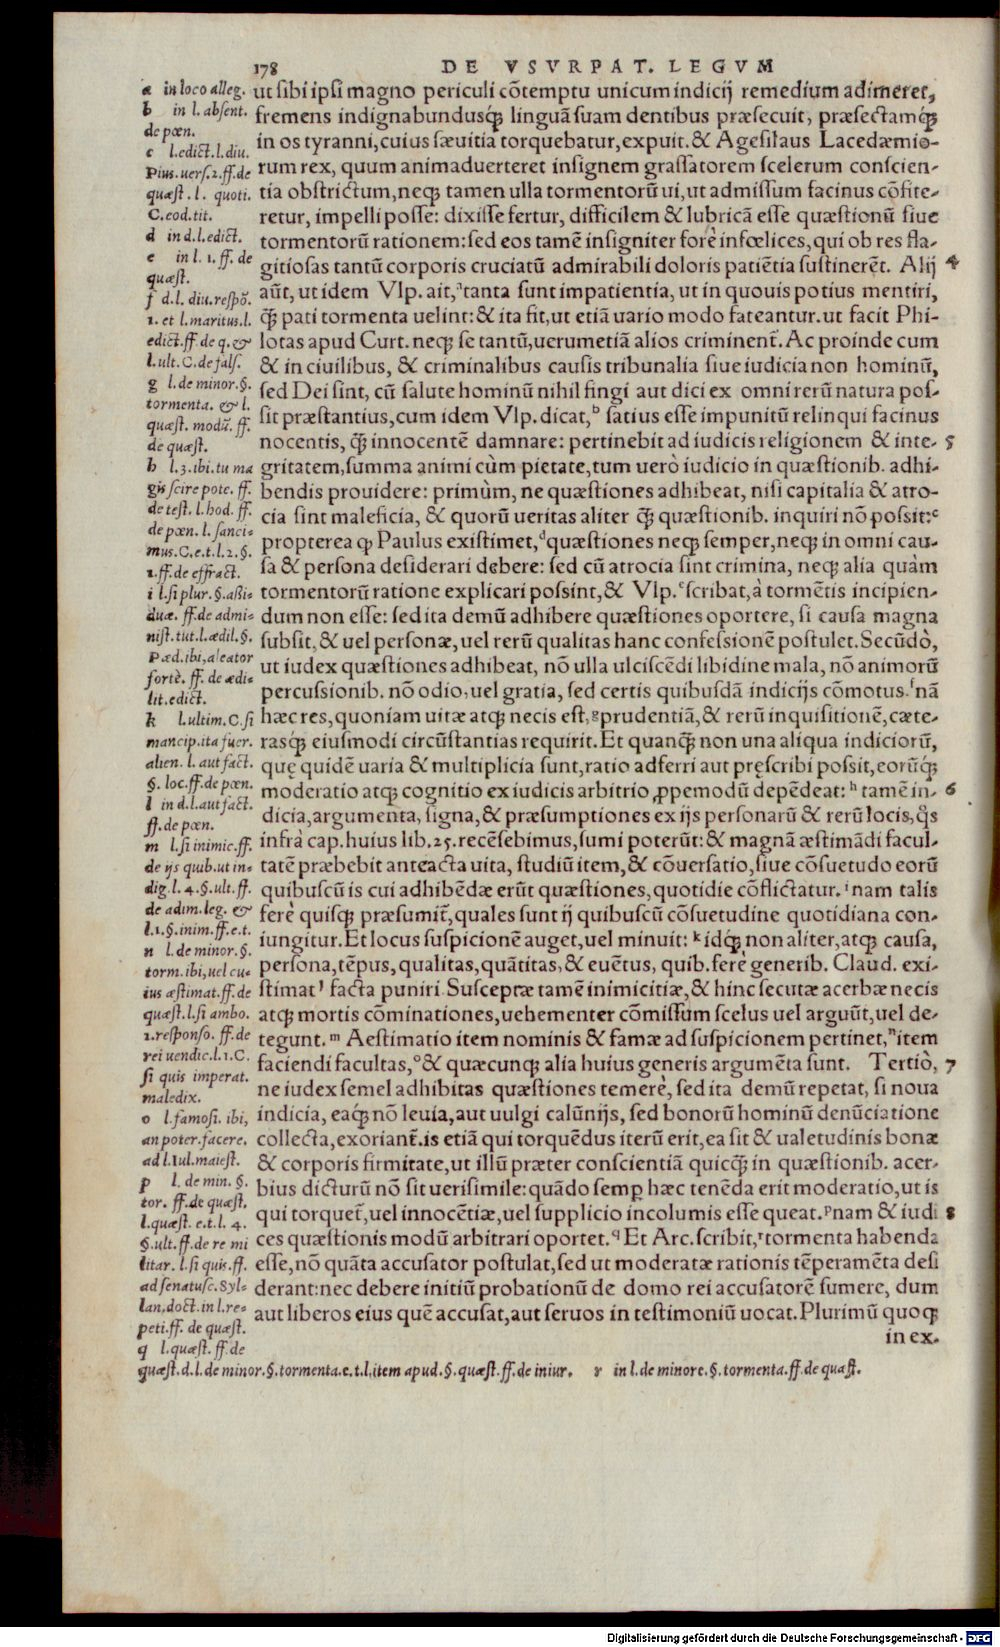 178 DE VSVRPAT. LEGVM
ut sibi ipsi magno periculi cõtemptu unicum indicij remedium adimeret,
fremens indignabundusq́ꝫ linguã suam dentibus præsecuit, præsectamq́ꝫ
in os tyranni, cuius sæuitia torquebatur, expuit. & Agesilaus Lacedæmio-
rum rex, quum animaduerteret insignem grassatorem scelerum conscien-
tia obstrictum, neqꝫ tamen ulla tormentorũ ui, ut admissum facinus cõfite-
retur, impelli posse: dixisse fertur, difficilem & lubricã esse quæstionũ siue
tormentorũ rationem: sed eos tamẽ insigniter forè infœlices, qui ob res fla-
gitiosas tantũ corporis cruciatũ admirabili doloris patiẽtia sustinerẽt. Alij 4
aũt, ut idem Vlp. ait,ᵃ tanta sunt impatientia, ut in quouis potius mentiri,
q̃ꝫ pati tormenta uelint: & ita fit, ut etiã uario modo fateantur. ut facit Phi-
lotas apud Curt. neqꝫ se tantũ, uerumetiã alios criminent̃. Ac proinde cum
& in ciuilibus, & criminalibus causis tribunalia siue iudicia non hominũ,
sed Dei sint, cũ salute hominũ nihil fingi aut dici ex omni rerũ natura pos-
sit præstantius, cum idem Vlp. dicat,ᵇ satius esse impunitũ relinqui facinus
nocentis, q̃ꝫ innocentẽ damnare: pertinebit ad iudicis religionem & inte- 5
gritatem, summa animi cùm pietate, tum uerò iudicio in quæstionib. adhi-
bendis prouidere: primùm, ne quæstiones adhibeat, nisi capitalia & atro-
cia sint maleficia, & quorũ ueritas aliter q̃ꝫ quæstionib. inquiri nõ possit:ᶜ
propterea ꝙ Paulus existimet,ᵈ quæstiones neqꝫ semper, neqꝫ in omni cau-
sa & persona desiderari debere: sed cũ atrocia sint crimina, neqꝫ alia quàm
tormentorũ ratione explicari possint, & Vlp.ᵉ scribat, à tormẽtis incipien-
dum non esse: sed ita demũ adhibere quæstiones oportere, si causa magna
subsit, & uel personæ, uel rerũ qualitas hanc confessionẽ postulet. Secũdò,
ut iudex quæstiones adhibeat, nõ ulla ulciscẽdi libidine mala, nõ animorũ
percussionib. nõ odio, uel gratia, sed certis quibusdã indicijs cõmotus.ᶠ nã
hæc res, quoniam uitæ atqꝫ necis est,ᵍ prudentiã, & rerũ inquisitionẽ, cæte-
rasq́ꝫ eiusmodi circũstantias requirit. Et quanq̃ꝫ non una aliqua indiciorũ,
quę quidẽ uaria & multiplicia sunt, ratio adferri aut pręscribi possit, eorũq́ꝫ
moderatio atqꝫ cognitio ex iudicis arbitrio ꝓpemodũ depẽdeat:ʰ tamẽ in- 6
dicia, argumenta, signa, & præsumptiones ex ijs personarũ & rerũ locis, q̊s
infrà cap. huius lib. 25. recẽsebimus, sumi poterũt: & magnã æstimãdi facul-
tatẽ præbebit anteacta uita, studiũ item, & cõuersatio, siue cõsuetudo eorũ
quibuscũ is cui adhibẽdæ erũt quæstiones, quotidie cõflictatur.ⁱ nam talis
ferè quisqꝫ præsumit̃, quales sunt ij quibuscũ cõsuetudine quotidiana con-
iungitur. Et locus suspicionẽ auget, uel minuit:ᵏ idq́ꝫ non aliter, atqꝫ causa,
persona, tẽpus, qualitas, quãtitas, & euẽtus, quib. ferè generib. Claud. exi-
stimatˡ facta puniri. Susceptæ tamẽ inimicitiæ, & hinc secutæ acerbæ necis
atqꝫ mortis cõminationes, uehementer cõmissum scelus uel arguũt, uel de-
tegunt.ᵐ Aestimatio item nominis & famæ ad suspicionem pertinet,ⁿ item
faciendi facultas,ᵒ & quæcunqꝫ alia huius generis argumẽta sunt. Tertiò, 7
ne iudex semel adhibitas quæstiones temerè, sed ita demũ repetat, si noua
indicia, eaq́ꝫ nõ leuia, aut uulgi calũnijs, sed bonorũ hominũ denũciatione
collecta, exoriant̃. is etiã qui torquẽdus iterũ erit, ea sit & ualetudinis bonæ
& corporis firmitate, ut illũ præter conscientiã quicq̃ꝫ in quæstionib. acer-
bius dicturũ nõ sit uerisimile: quãdo semꝑ hæc tenẽda erit moderatio, ut is
qui torquet̃, uel innocẽtiæ, uel supplicio incolumis esse queat.ᵖ nam & iudi 8
ces quæstionis modũ arbitrari oportet.q Et Arc. scribit,ʳ tormenta habenda
esse, nõ quãta accusator postulat, sed ut moderatæ rationis tẽperamẽta desi
derant: nec debere initiũ probationũ de domo rei accusatorẽ sumere, dum
aut liberos eius quẽ accusat, aut seruos in testimoniũ uocat. Plurimũ quoqꝫ
in ex-
a in loco alleg.
b in l. absent.
de pœn.
c l.edict.l.diu.
Pius.uers.2.ff.de
quæst. l. quoti.
C.eod.tit.
d in d.l.edict.
e in l. 1. ff. de
quæst.
f d.l. diu.respõ.
1. et l.maritus.l.
edict.ff.de q. &
l.ult.C.de fals.
g l.de minor.§.
tormenta. & l.
quæst. modũ. ff.
de quæst.
h l.3.ibi.tu ma
gis scire pote. ff.
de test. l.hod. ff.
de pœn. l. sanci-
mus.C.e.t.l.2.§.
1.ff.de effract.
i l.si plur.§.aßi-
duæ. ff.de admi-
nist.tut.l.ædil.§.
Pæd.ibi,aleator
fortè. ff. de ædi-
lit.edict.
k l.ultim.C.si
mancip.ita fuer.
alien. l. aut fact.
§. loc.ff.de pœn.
l in d.l.aut fact.
ff.de pœn.
m l.si inimic.ff.
de ijs quib.ut in-
dig.l. 4.§.ult.ff.
de adim.leg. &
l.1.§.inim.ff.e.t.
n l.de minor.§.
torm.ibi,uel cu-
ius æstimat.ff.de
quæst.l.si ambo.
1.responso. ff.de
rei uendic.l.1.C.
si quis imperat.
maledix.
o l.famosi. ibi,
an poter.facere.
ad l.Iul.maiest.
p l. de min. §.
tor. ff.de quæst.
l.quæst. e.t.l. 4.
§.ult.ff.de re mi
litar. l.si quis.ff.
ad senatusc.Syl-
lan,doct.in l.re-
peti.ff. de quæst.
q l.quæst. ff.de
quæst.d.l.de minor.§.tormenta.e.t.l.item apud.§.quæst.ff.de iniur. r in l.de minore.§.tormenta.ff.de quæst.
Digitalisierung gefördert durch die Deutsche Forschungsgemeinschaft - DFG